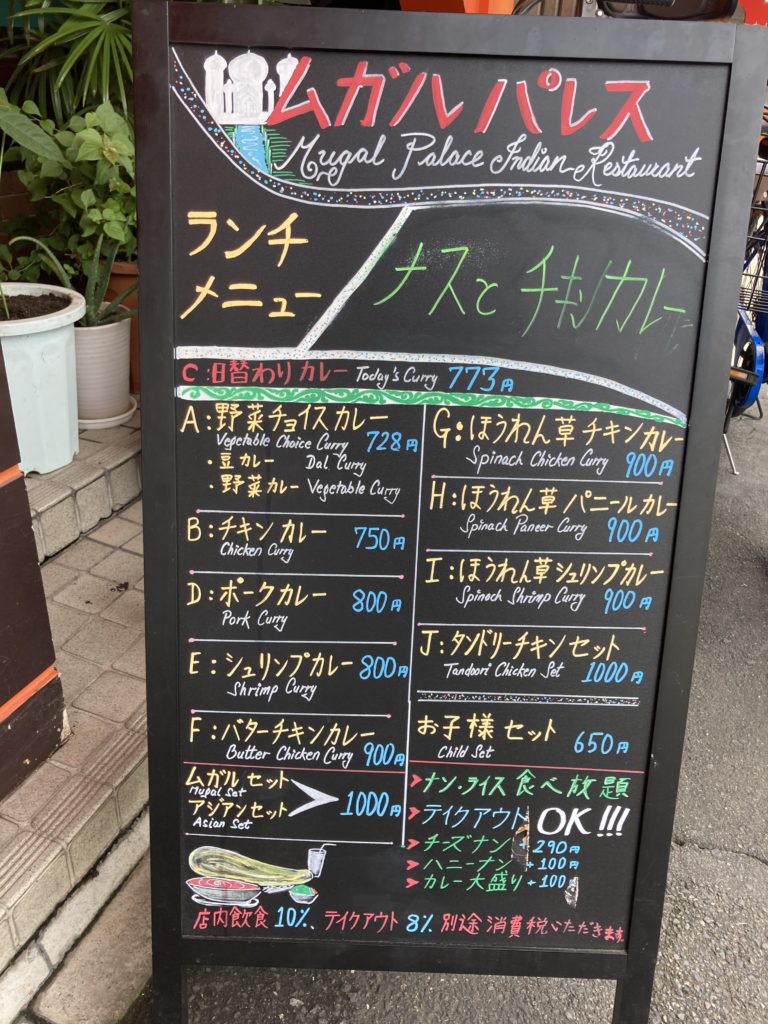 ムガル パレス
Mugal Palace Indian Restaurant
ランチ
メニュー
ナスと チキンカレー
C:日替わりカレー Today's Curry 773円
A:野菜チョイスカレー
Vegetable Choice Curry 728円
・豆カレー Dal Curry
・野菜カレー Vegetable Curry
B:チキンカレー 750円
Chicken Curry
D:ポークカレー 800円
Pork Curry
E:シュリンプカレー 800円
Shrimp Curry
F:バターチキンカレー
Butter Chicken Curry 900円
ムガルセット
Mugal Set
アジアンセット 1000円
Asian Set
G:ほうれん草チキンカレー
Spinach Chicken Curry 900円
H:ほうれん草パニールカレー
Spinach Paneer Curry 900円
I:ほうれん草シュリンプカレー
Spinach Shrimp Curry 900円
J:タンドリーチキンセット
Tandoori Chicken Set 1000円
お子様セット 650円
Child Set
ナン・ライス食べ放題
テイクアウト OK!!!
チーズナン +290円
ハニーナン +100円
カレー大盛り +100
店内飲食10%、テイクアウト8%別途消費税いただきます